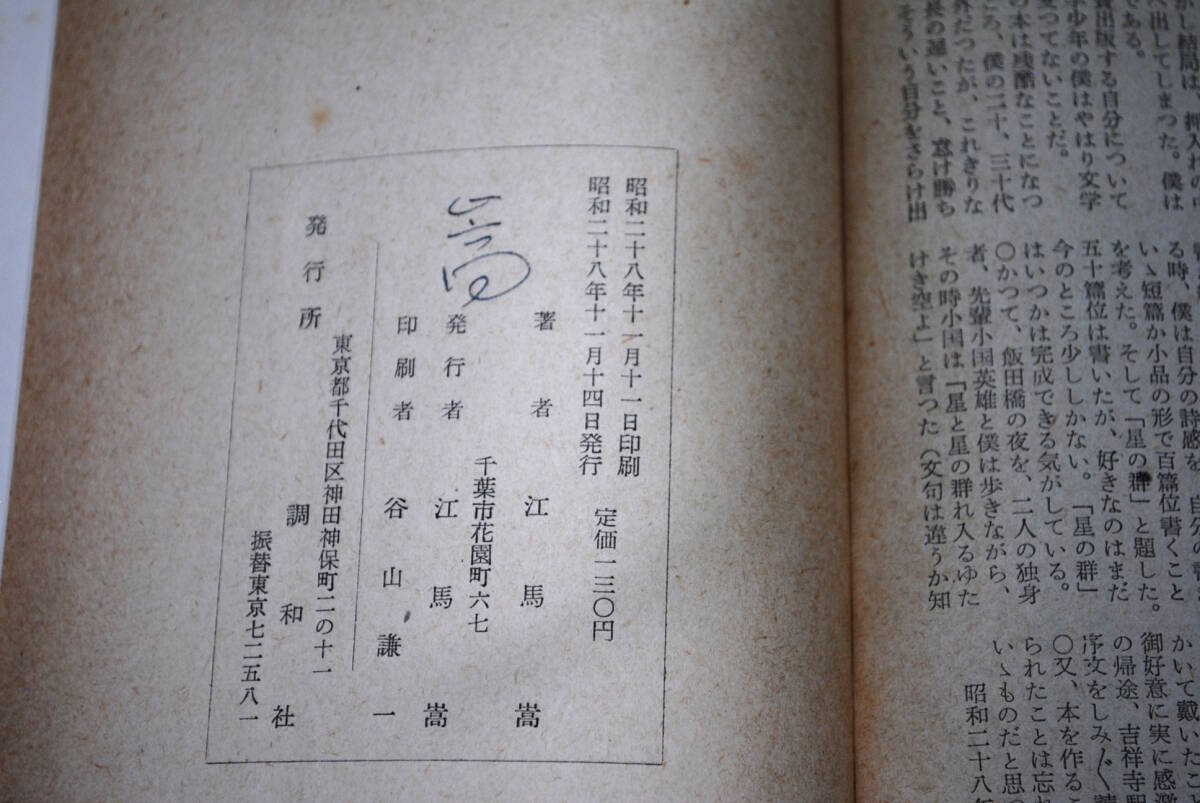 し結局は、押入れのい
出してしまつた。僕は
である。
費出版する自分について
少年の僕はやはり文学
立つてないことだ。
の本は残酷なことになつ
ころ、僕の二十、三十代
外だつたが、これきりな
長の遅いこと、怠け勝ち
そういう自分をさらけ出
る時、僕は自分の詩感を、自分の
いゝ短篇か小品の形で百篇位書くこと
を考えた。そして「星の群」と題した。
五十篇位は書いたが、好きなのはまだ
今のところ少ししかない。「星の群」
はいつかは完成できる気がしている。
〇かつて、飯田橋の夜を、二人の独身
者、先輩小国英雄と僕は歩きながら、
その時小国は「星と星の群れ入るゆた
けき空よ」と言つた（文句は違うか知
かいて戴いたこと
御好意に実に感激
の帰途、吉祥寺駅
序文をしみ〴〵
〇又、本を作るこ
られたことは忘
いゝものだと思
昭和二十八年
昭和二十八年十一月十一日印刷
昭和二十八年十一月十四日発行 定価一三〇円
著者 江馬嵩
千葉市花園町六七
嵩
発行者 江馬嵩
印刷者 谷山謙一
東京都千代田区神田神保町二の十一
発行所 調和社
振替東京七二五八一